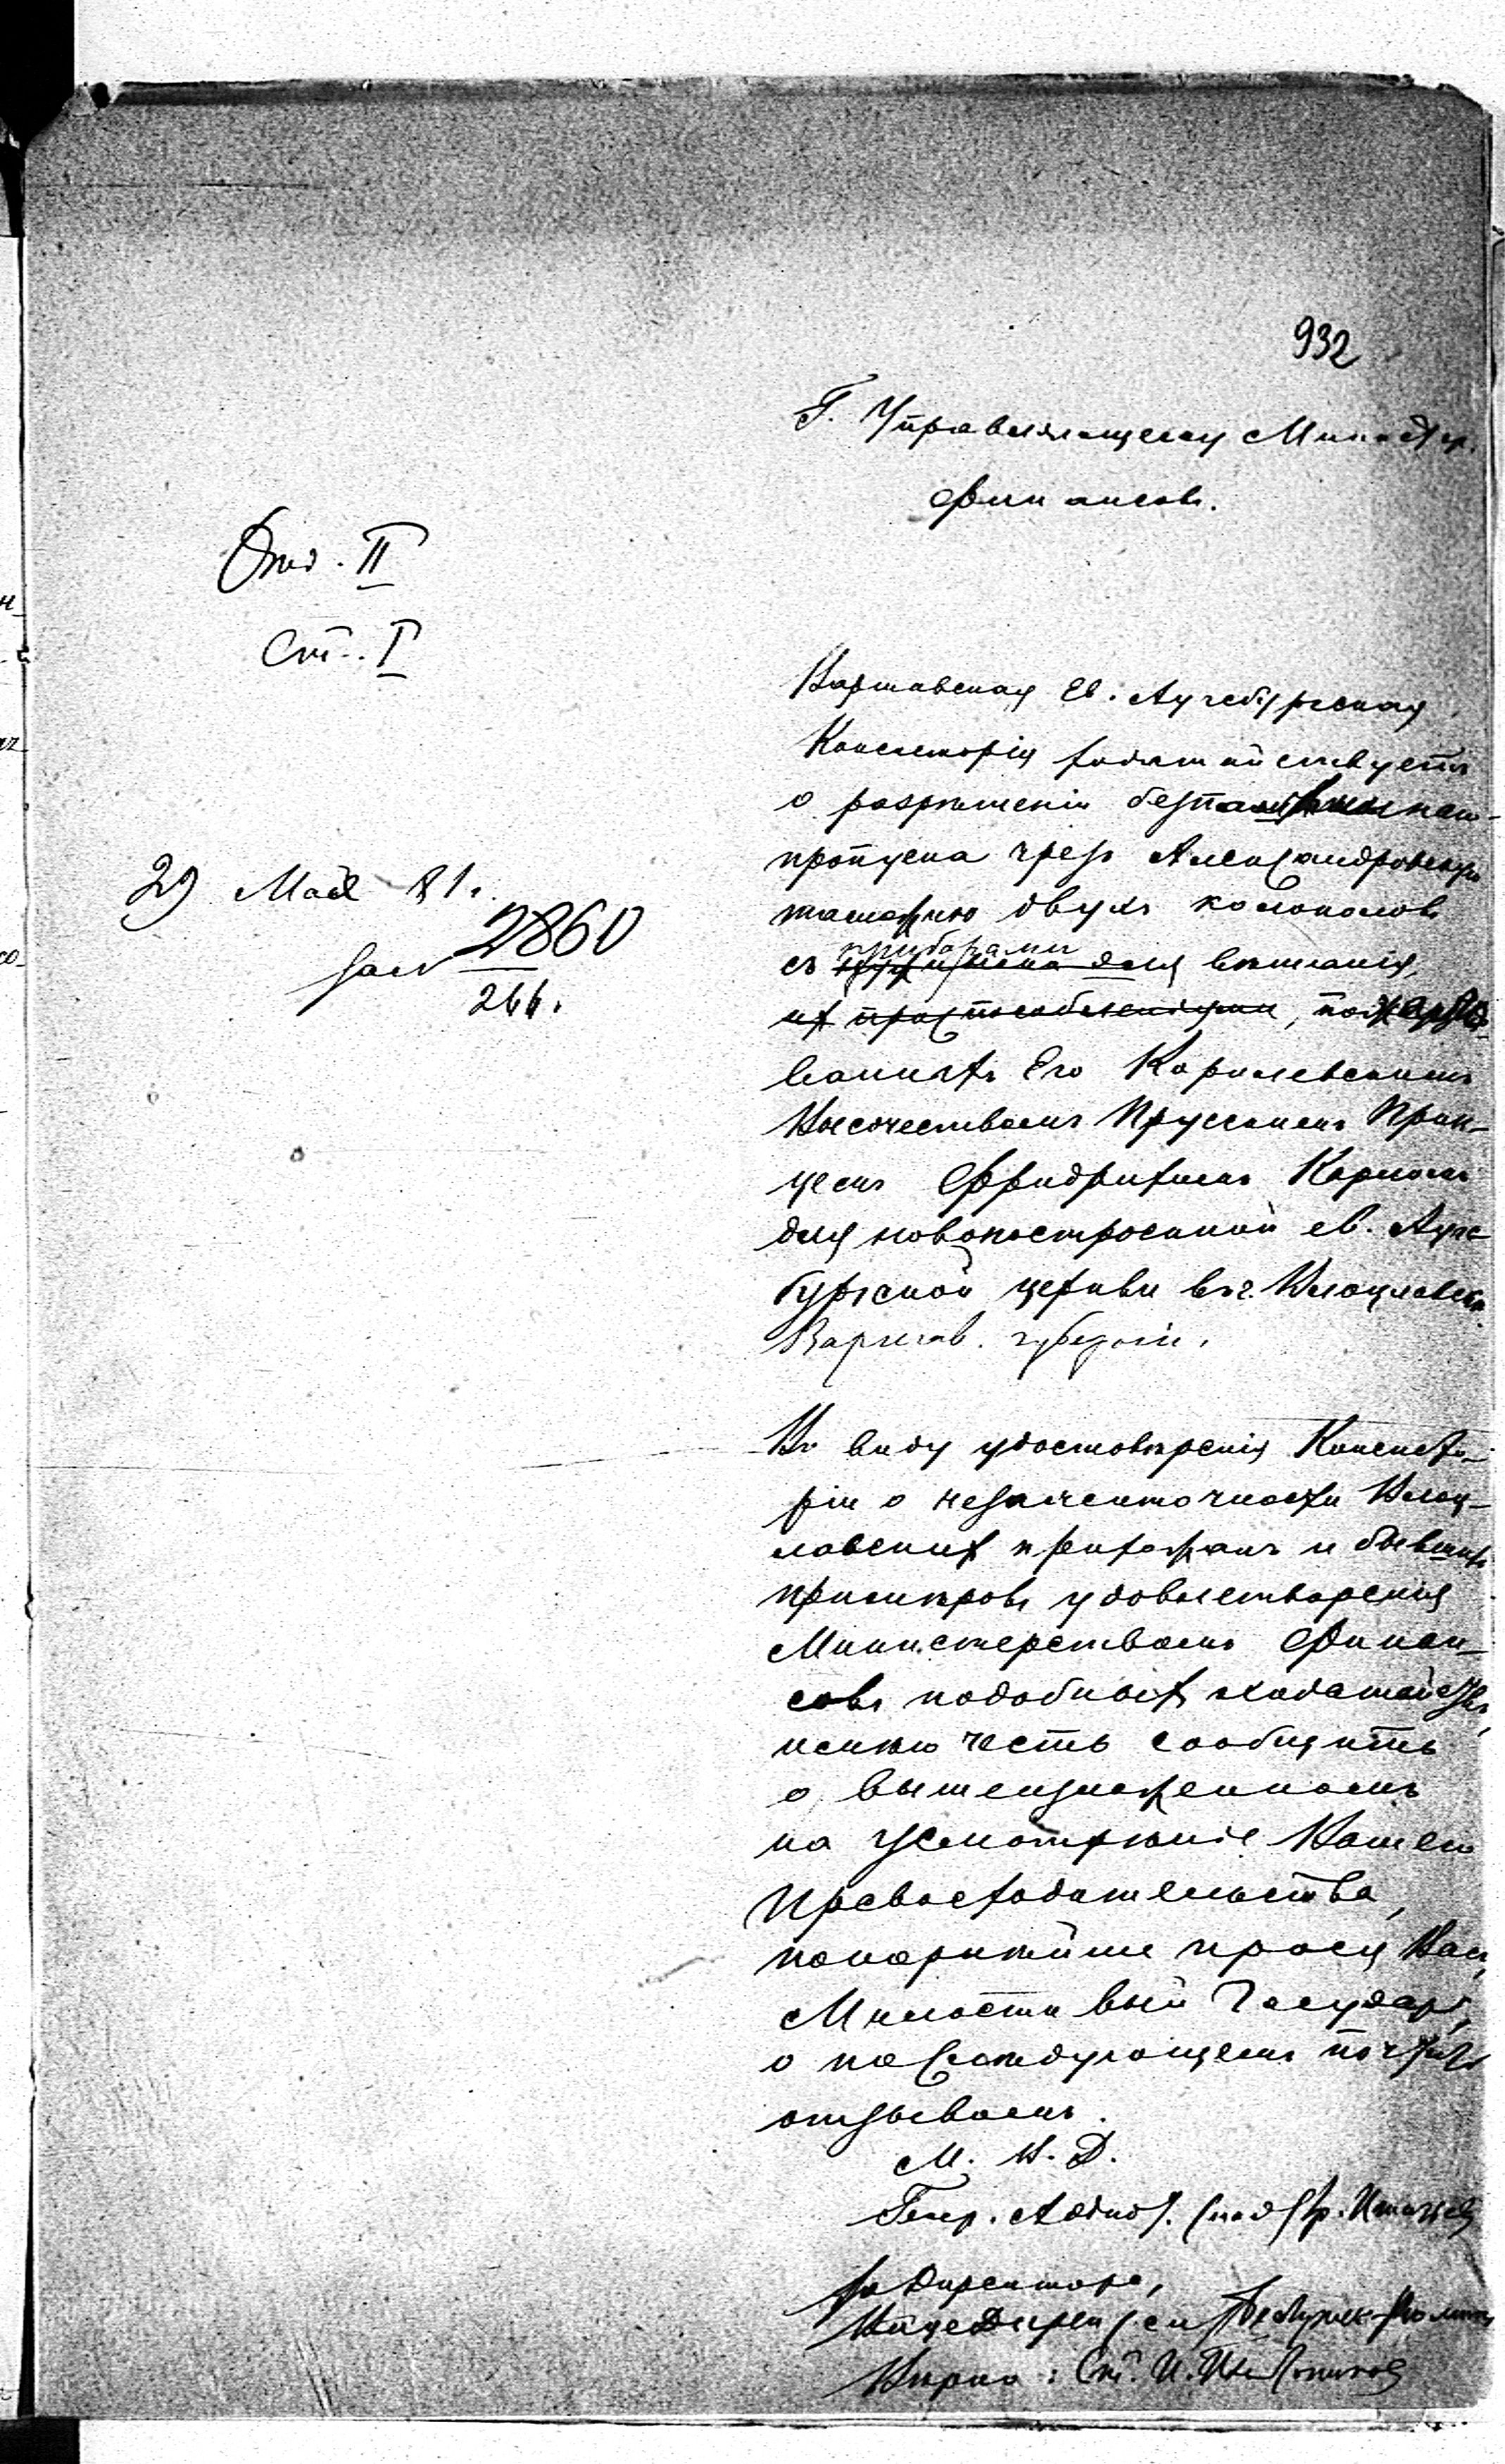 932
Г. Управляющему Министер.
Финансовъ.
Отд. II
Ст. I
29 Мая 81.
2860
266.
Варшавская Ев. Аугсбургская
Консисторія ходатайствуетъ
о разрѣшеніи
пропуска чрезъ Александровскую
таможню двухъ колоколовъ
съ приборами для вѣшанія,
их приспособленіями, пожертво-
ванныхъ Его Королевскимъ
Высочествомъ Прусскимъ Прин-
цемъ Фридрихомъ Карломъ
для новопостроенной ев. Аугс-
бургской церкви въ г. Влоцлавскѣ
Варшав. губерніи.
Въ виду удостовѣренія Консисто-
ріи о незажиточности Влоц-
лавскихъ прихожанъ и бывшихъ
примѣровъ удовлетворенія
Министерствомъ Финан-
совъ подобныхъ ходатайствъ,
имѣю честь сообщить
о вышеизложенномъ
на усмотрѣніе Вашего
Превосходительства,
покорнѣйше прося Васъ,
Милостивый Государь,
о послѣдующемъ почтить
отзывомъ.
М. В. Д.
Генер. Адъют. (под) Гр. Игнатьев
За Директора,
Вице Директ
Вѣрно: Ст.